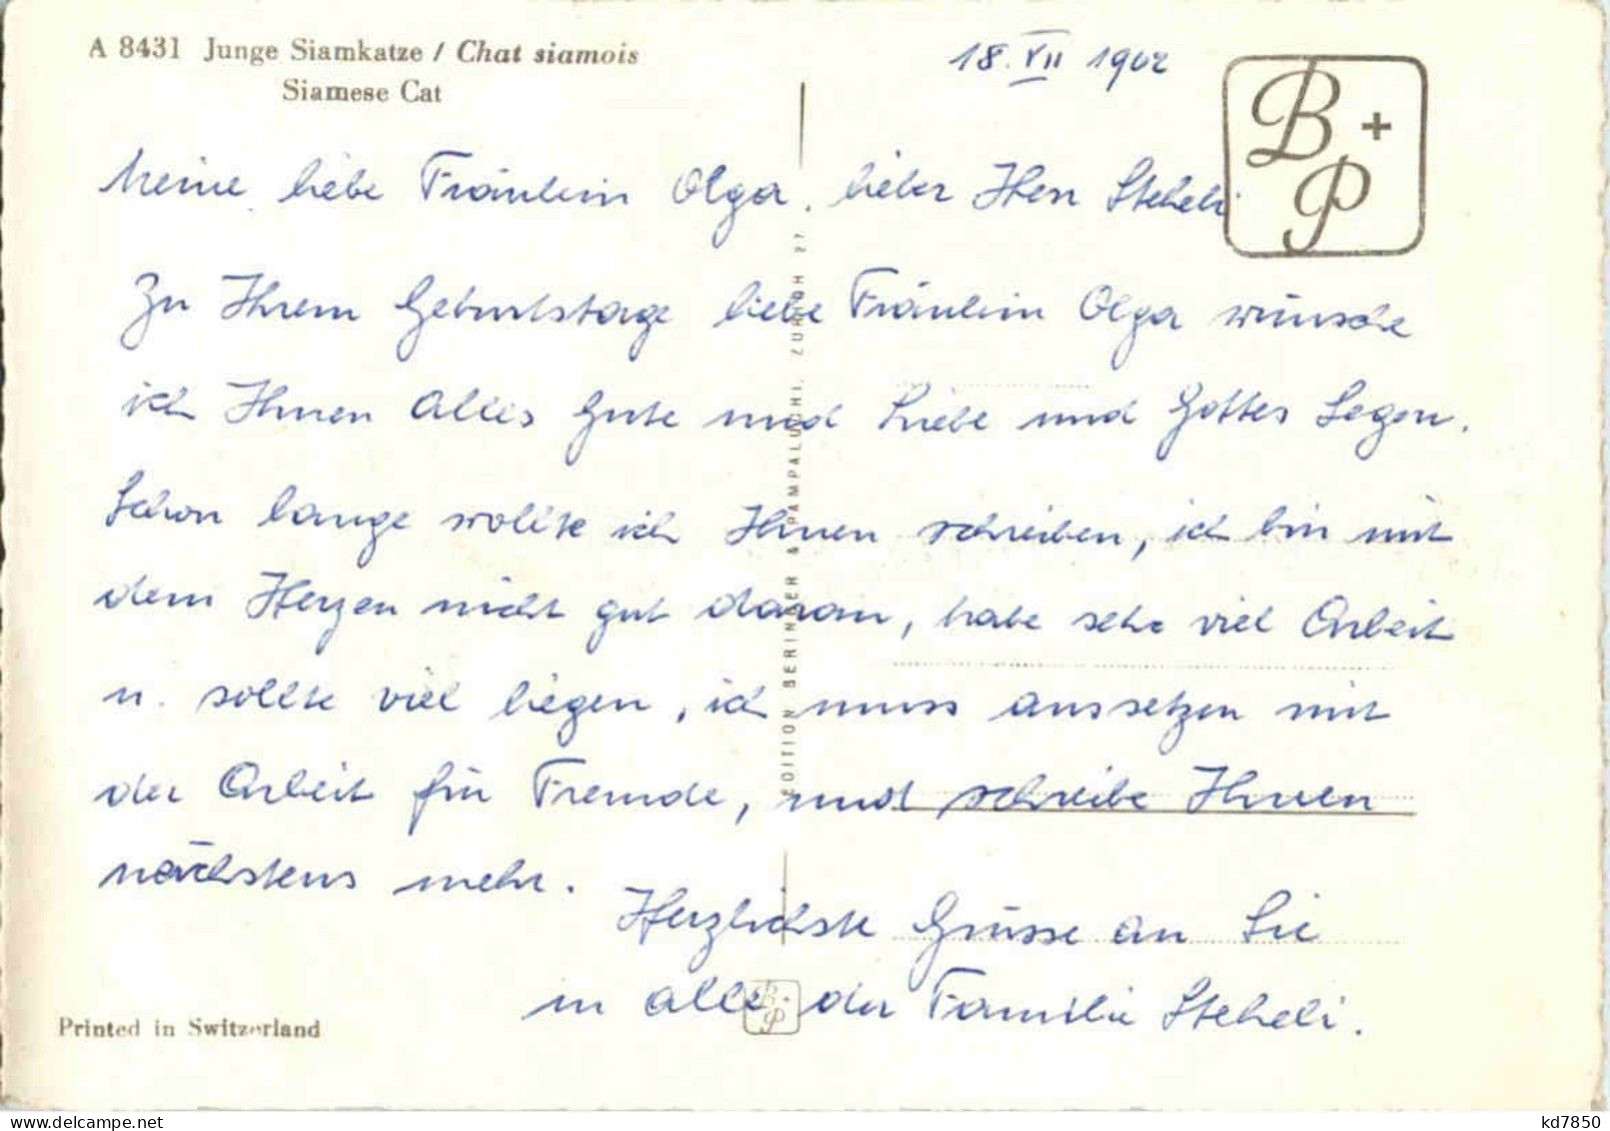 A 8431 Junge Siamkatze / Chat siamois
Siamese Cat
18. VII 1962
B + P
Meine liebe Fräulein Olga, lieber Herr Steheli
Zu Ihrem Geburtstage liebe Fräulein Olga wünsche
ich Ihnen alles Gute und Liebe und Gottes Segen.
Schon lange wollte ich Ihnen schreiben, ich bin mit
dem Herzen nicht gut daran, habe sehr viel Arbeit
u. sollte viel liegen, ich muss aussetzen mit
der Arbeit für Fremde, und schreibe Ihnen
nächstens mehr.
Herzlichste Grüsse an Sie
u alle der Familie Steheli.
EDITION BERINGER & PAMPALUCHI, ZURICH 27
B + P
Printed in Switzerland
kd7850